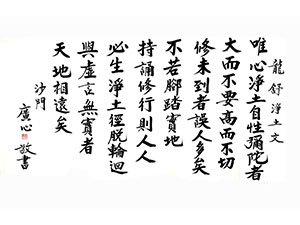 龍舒淨土文
唯心淨土自性彌陀者
大而不要高而不切
修未到者誤人多矣
不若腳踏實地
持誦修行則人人
必生淨土徑脫輪迴
與虛言無實者
天地相遠矣
沙門
廣心敬書